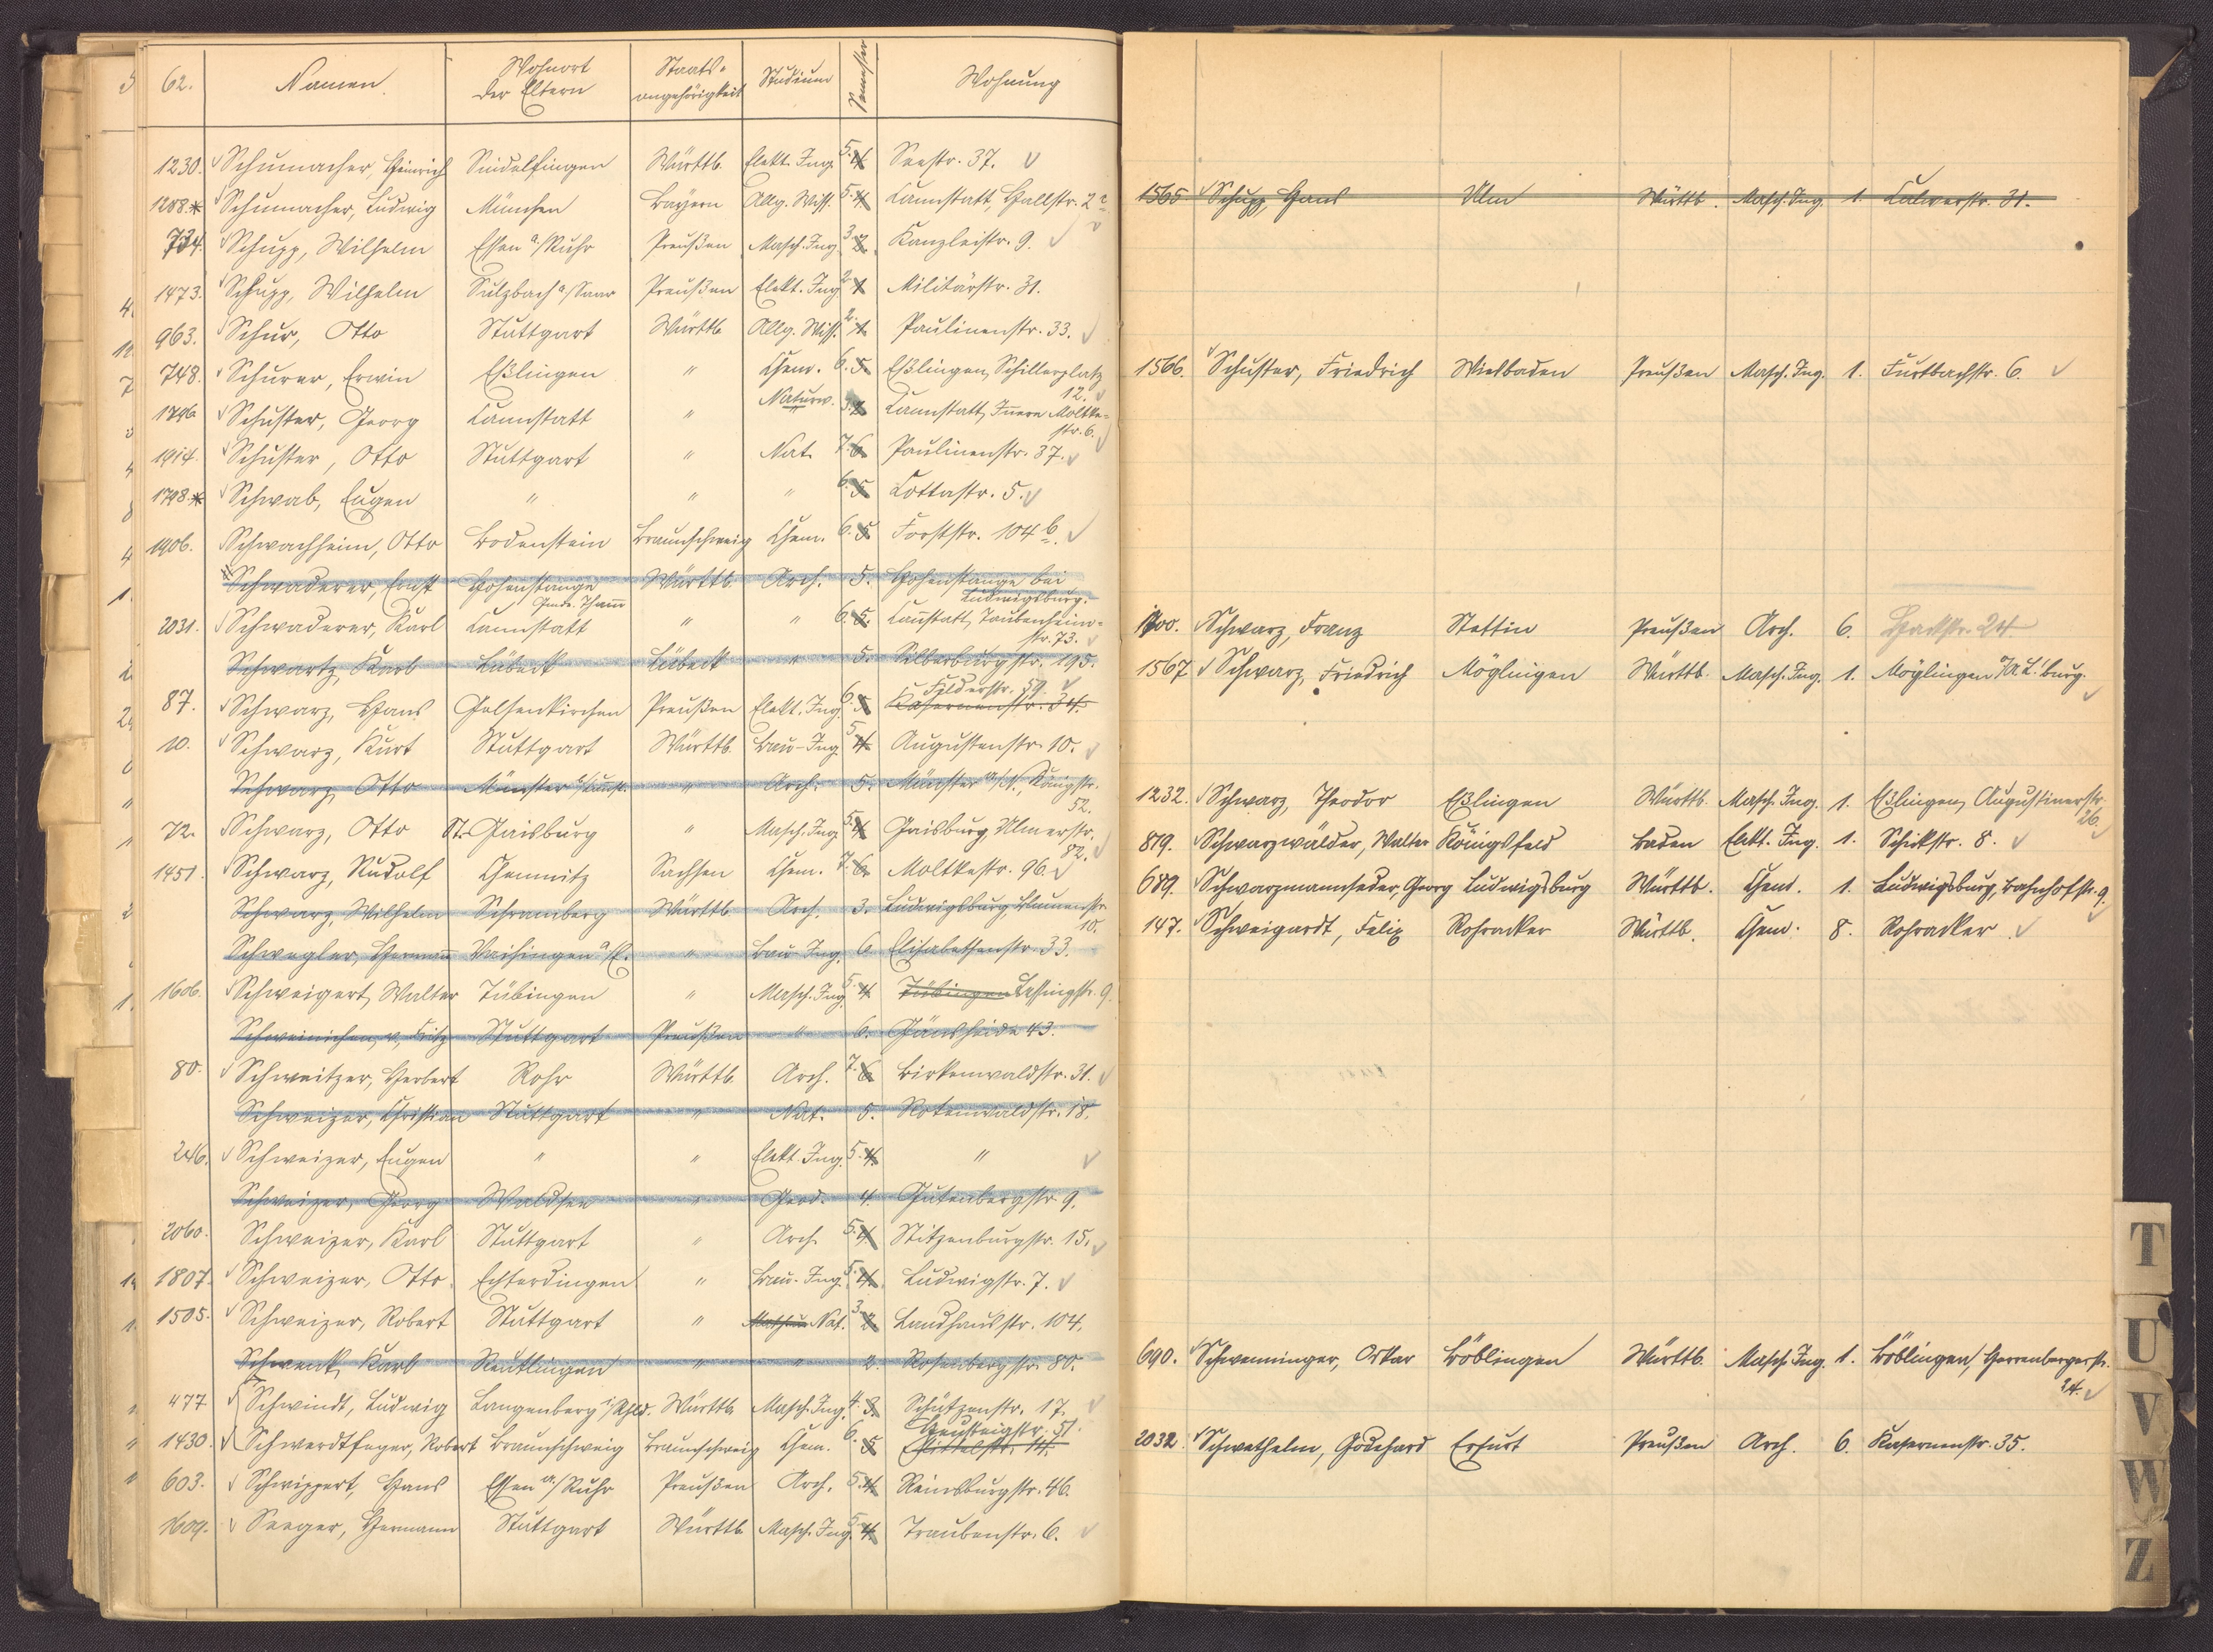 62. Namen. Wohnort der Eltern Staats-angehörigkeit Studium Semester Wohnung
1230. Schumacher, Heinrich Sindelfingen Württb. Elekt. Ing. 5. 4. Seestr. 37.
1208.* Schumacher, Ludwig München Bayern Allg. Wiss. 5. 4. Cannstatt, Hallstr. 2
734. Schupp, Wilhelm Essen a/Ruhr Preußen Masch. Ing. 3. 2. Kanzleistr. 9.
1473. Schupp, Wilhelm Sulzbach a/Saar Preußen Elekt. Ing. 2. 1. Militärstr. 31.
963. Schur, Otto Stuttgart Württb. Allg. Wiss. 2. 1. Paulinenstr. 33.
748. Schurer, Erwin Eßlingen " Chem. 6. 5. Eßlingen, Schillerplatz 12.
1796 Schuster, Georg Cannstatt " Naturw. 3. 2. Cannstatt, Innere Moltke-
str. 6.
1914. Schuster, Otto Stuttgart " Nat. 7. 6. Paulinenstr. 37.
1798.* Schwab, Eugen " " " 6. 5. Cottastr. 5.
1906. Schwachheim, Otto Bodenstein Braunschweig Chem. 6. 5. Forststr. 104 b.
Schwaderer, Ernst Hohenstange Gmde. Thamm Württb. Arch. 5. Hohenstange bei
Ludwigsburg.
2031. Schwaderer, Karl Cannstatt " " 6. 5. Cannstatt, Taubenheim-
str. 73.
Schwartz, Karl Lübeck Lübeck " 5. Silberburgstr. 195.
Filderstr. 59.
87. Schwarz, Hans Gelsenkirchen Preußen Elekt. Ing. 6. 5. Kasernenstr. 34.
10. Schwarz, Kurt Stuttgart Württb. Bau-Ing. 5. 4. Augustenstr. 10.
Schwarz, Otto Münster " Arch. 5. Münster a/N., Königstr.
52.
72. Schwarz, Otto St. Gaisburg " Masch. Ing. 5. 4. Gaisburg, Ulmerstr.
82.
1451. Schwarz, Rudolf Chemnitz Sachsen Chem. 7. 6. Moltkestr. 96.
Schwarz, Wilhelm Schramberg Württb. Arch. 3. Ludwigsburg, Blumenstr.
10.
Schwegler, Hermann Vaihingen a/E. " Bau Ing. 6 Elisabethenstr. 33.
1606. Schweigert, Walter Tübingen " Masch. Ing. 5. 4. Tübingen Lessingstr. 9.
Schweinichen, v., Fritz Stuttgart Preußen " 6. Gänsheide 43.
80. Schweitzer, Herbert Rohr Württb. Arch. 7. 6. Birkenwaldstr. 31.
Schweizer, Christian Stuttgart " Nat. 5. Rotenwaldstr. 18.
246. Schweizer, Eugen " " Elekt. Ing. 5. 4. "
Schweizer, Georg Waldsee " Geod. 4. Gutenbergstr. 9.
2060. Schweizer, Karl Stuttgart " Arch. 5. 4. Stitzenburgstr. 15.
1807. Schweizer, Otto Echterdingen " Bau-Ing. 5. 4. Ludwigstr. 7.
1505. Schweizer, Robert Stuttgart " Nat. 3. 2. Landhausstr. 104.
Schwenk, Karl Reutlingen " " 2. Rosenbergstr. 80.
477 Schwindt, Ludwig Langenberg i/Rhld. Württb. Masch. Ing. 4. 3. Schützenstr. 17.
Neusteigstr. 51.
1430 Schwerdtfeger, Robert Braunschweig Braunschweig Chem. 6. 5.
603. Schwippert, Hans Essen a/Ruhr Preußen Arch. 5. 4. Reinsburgstr. 46.
1609. Seeger, Hermann Stuttgart Württb. Masch. Ing. 5. 4. Traubenstr. 6.
1565 Schupp, Hans Ulm Württb. Masch. Ing. 1. Calwerstr. 31.
1566. Schuster, Friedrich Wiesbaden Preußen Masch. Ing. 1. Furtbachstr. 6.
1700. Schwarz, Franz Stettin Preußen Arch. 6. Hackstr. 24
1567 Schwarz, Friedrich Möglingen Württb. Masch. Ing. 1. Möglingen O/A. L'burg.
1232. Schwarz, Theodor Eßlingen Württb. Masch. Ing. 1. Eßlingen, Augustinerstr.
26.
819. Schwarzwälder, Walter Königsfeld Baden Elekt. Ing. 1. Schickstr. 8.
689. Schwarzmannseder, Georg Ludwigsburg Württb. Chem. 1. Ludwigsburg, Bahnhofstr. 9.
147. Schweigardt, Felix Rohracker Württb. Chem. 8. Rohracker
690. Schwenninger, Oskar Böblingen Württb. Masch. Ing. 1. Böblingen, Herrenbergerstr.
24.
2032. Schwethelm, Godehard Erfurt Preußen Arch. 6. Kasernenstr. 35.
T
U
V
W
Z